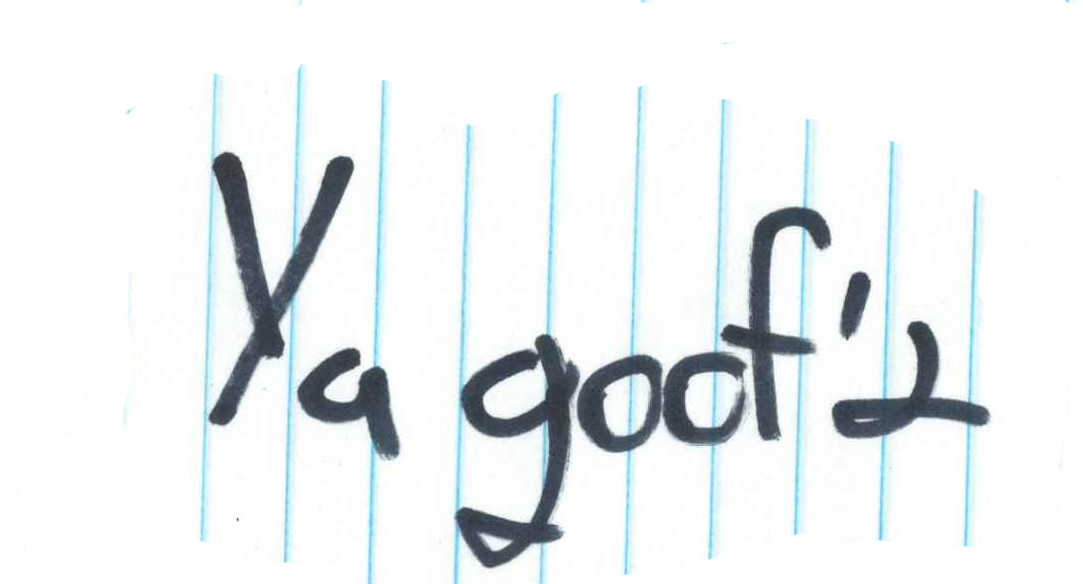 Ya goof'2